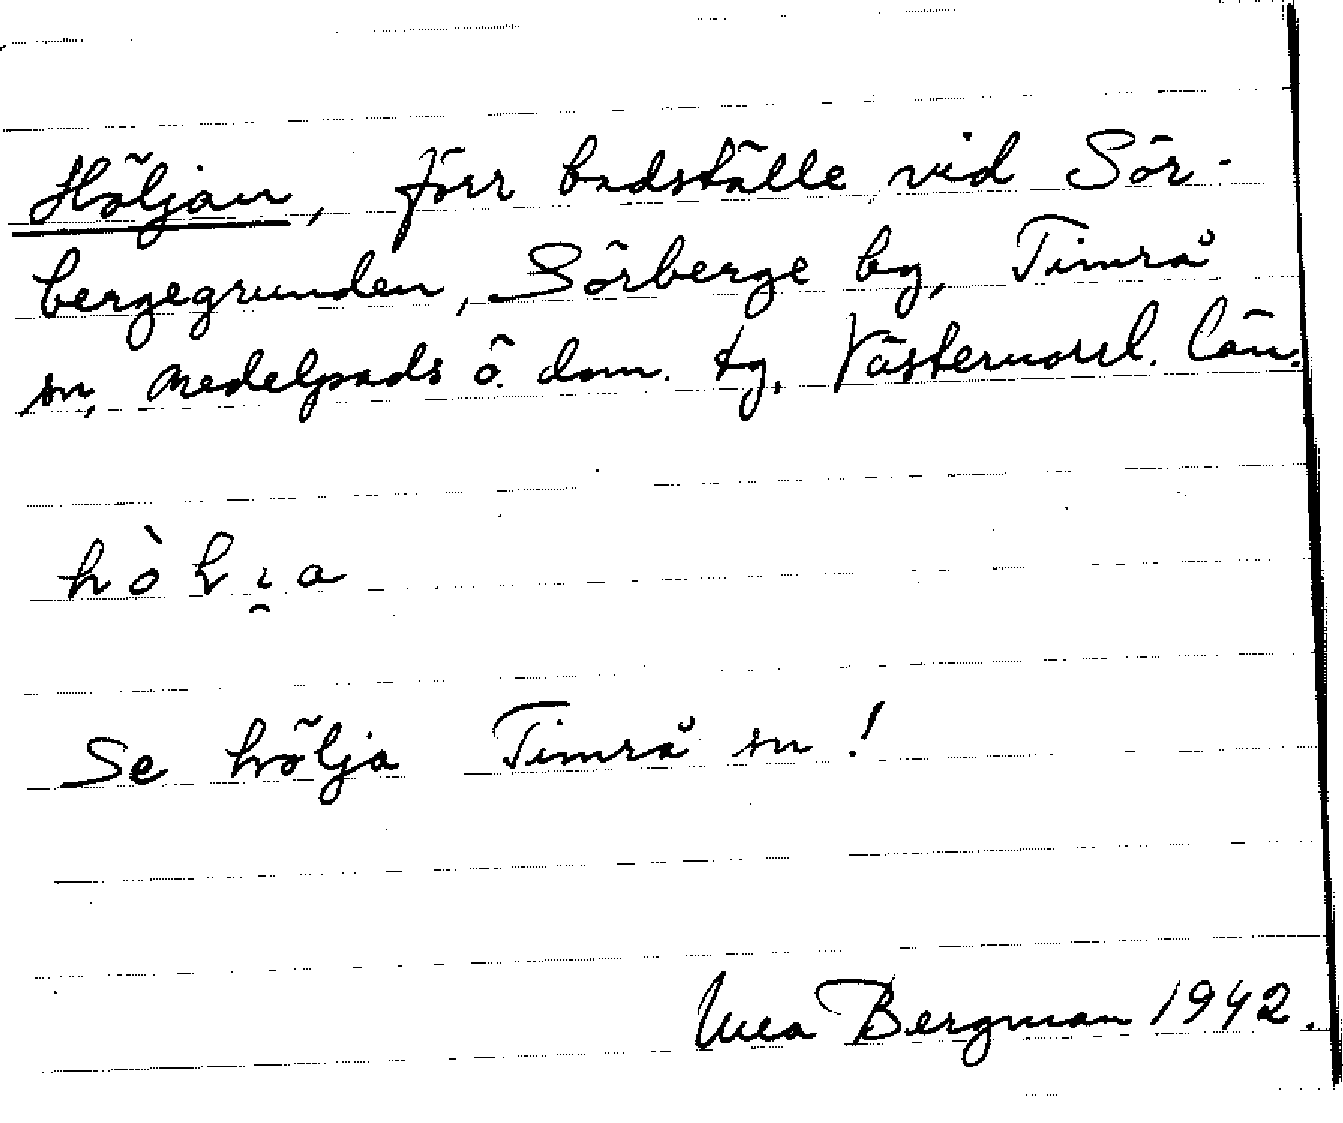 Höljan, förr badställe vid Sör-
bergegrunden, Sörberge by, Timrå
sn, Medelpads ö. dom. tg, Västernorrl. län.
Se hölja Timrå sn!
Bergman 1942.